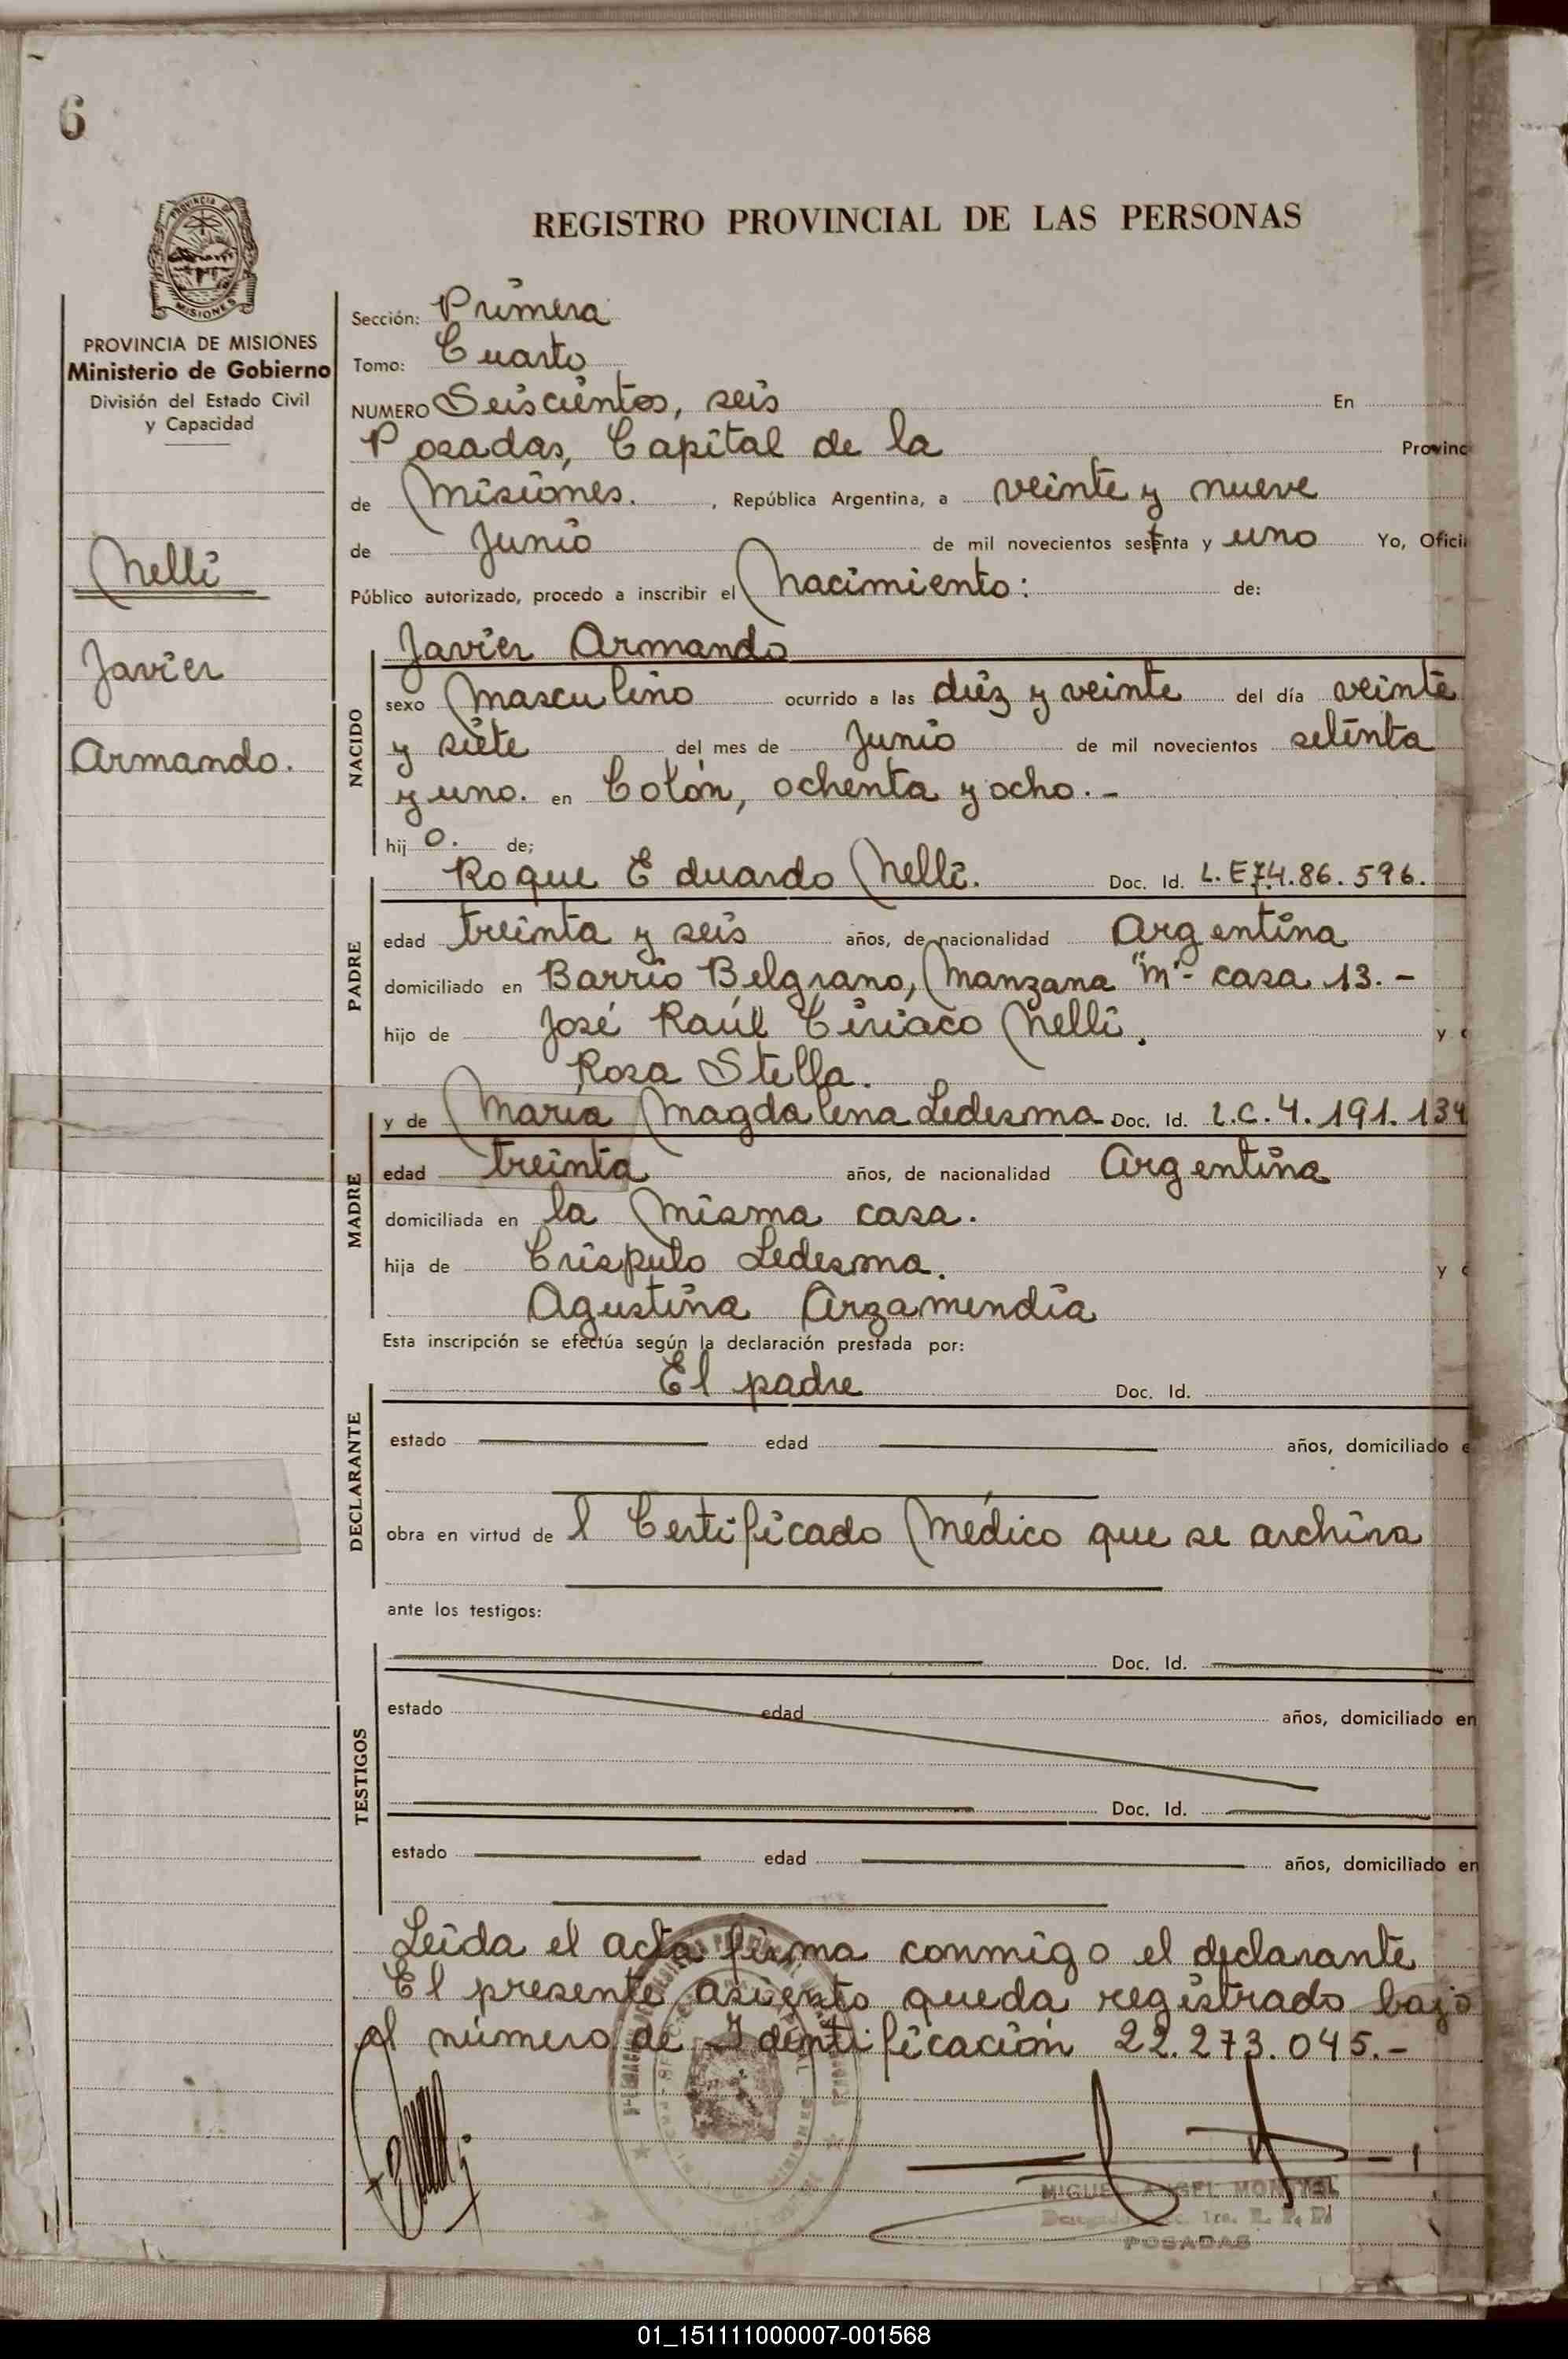 6
PROVINCIA DE
MISIONES
PROVINCIA DE MISIONES
Ministerio de Gobierno
División del Estado Civil
y Capacidad
Nelli
Javier
Armando.
REGISTRO PROVINCIAL DE LAS PERSONAS
Sección: Primera
Tomo: Cuarto
NUMERO Seiscientos, seis En
Posadas, Capital de la Provinc
de Misiones. , República Argentina, a veinte y nueve
de Junio de mil novecientos setenta y uno Yo, Ofici
Público autorizado, procedo a inscribir el Nacimiento: de:
NACIDO
Javier Armando
sexo Masculino ocurrido a las diez y veinte del día veinte
y siete del mes de Junio de mil novecientos setenta
y uno. en Colón, ochenta y ocho. -
hij o. de;
PADRE
Roque Eduardo Nelli. Doc. Id. L.E 7.4.86.596.
edad treinta y seis años, de nacionalidad Argentina
domiciliado en Barrio Belgrano, Manzana "M"- casa 13. -
hijo de José Raúl Ciriaco Nelli. y
Rosa Stella.
MADRE
y de María Magdalena Ledesma Doc. Id. L.C. 4.191.134
edad treinta años, de nacionalidad Argentina
domiciliada en la misma casa.
hija de Crispulo Ledesma. y
Agustina Arzamendia
Esta inscripción se efectúa según la declaración prestada por:
DECLARANTE
El padre Doc. Id.
estado edad años, domiciliado e
obra en virtud de l Certificado Médico que se archiva
ante los testigos:
TESTIGOS
Doc. Id.
estado edad años, domiciliado en
Doc. Id.
estado edad años, domiciliado en
Leida el acta firma conmigo el declarante
El presente asiento queda registrado bajo
el número de Identificación 22.273.045.-
MIGUEL ANGEL
POSADAS
01_151111000007-001568